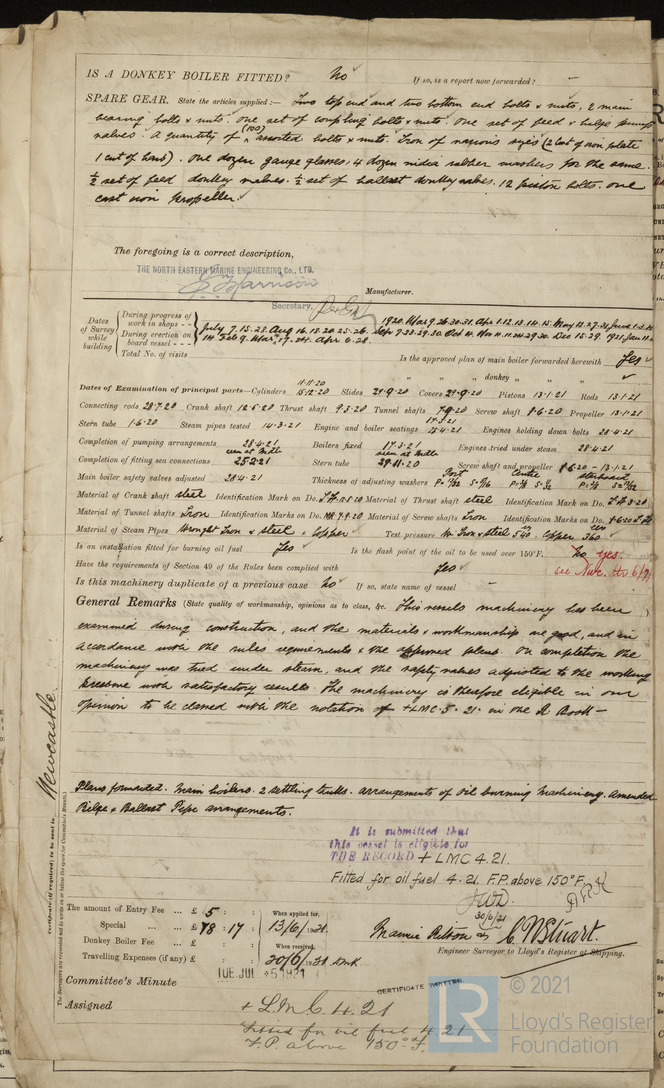 IS A DONKEY BOILER FITTED? No If so, is a report now forwarded? –
SPARE GEAR. State the articles supplied :— Two top end and two bottom end bolts & nuts, 2 main
bearing bolts & nuts. one set of coupling bolts & nuts. One set of feed & bilge pump
valves. A quantity of (100) assorted bolts & nuts. Iron of various sizes (2 Cwt of iron plate
1 cwt of bars). One dozen gauge glasses. 4 dozen india rubber washers for the same.
½ set of feed donkey valves. ½ set of ballast donkey valves. 12 piston bolts. one
cast iron propeller.
The foregoing is a correct description,
THE NORTH EASTERN MARINE ENGINEERING Co., LTD.
Harrison
Secretary. Manufacturer.
Dates of Survey while building
During progress of work in shops - -
During erection on board vessel - - -
Total No. of visits
1920. Mar 9. 26. 30. 31. Apr 1. 12. 13. 14. 15. May 12. 27. 31. June
July 7. 15. 23. Aug 16. 18. 20. 25. 26. Sep 9. 28. 29. 30. Oct 4. Nov 4. 11. 24. 29. 30. Dec 15. 29. 1921. Jan
14. Feb 9. Mar 17. 24. Apr 6. 28.
Is the approved plan of main boiler forwarded herewith Yes
" " " donkey " " "
Dates of Examination of principal parts—Cylinders 11.11.20 15.12.20 Slides 29.9.20 Covers 29.9.20 Pistons 13.1.21 Rods 13.1.21
Connecting rods 28.7.20 Crank shaft 12.5.20 Thrust shaft 9.3.20 Tunnel shafts 7.9.20 Screw shaft 8.6.20 Propeller 13.1.21
Stern tube 1.6.20 Steam pipes tested 14.3.21 Engine and boiler seatings Engines holding down bolts 28.4.21
Completion of pumping arrangements 28.4.21 Boilers fixed 17.3.21 Engines tried under steam 28.4.21
Completion of fitting sea connections 25.2.21 Stern tube 29.11.20 Screw shaft and propeller 8.6.20 – 13.1.21
Main boiler safety valves adjusted 28.4.21 Thickness of adjusting washers Port Centre Starboard
Material of Crank shaft steel Identification Mark on Do. Material of Thrust shaft steel Identification Mark on Do.
Material of Tunnel shafts Iron Identification Marks on Do. 7.9.20 Material of Screw shafts Iron Identification Marks on Do. 8.6.20
Material of Steam Pipes Wrought Iron & steel & Copper Test pressure W. Iron & Steel 540 Copper 360
Is an installation fitted for burning oil fuel Yes Is the flash point of the oil to be used over 150°F. No yes.
Have the requirements of Section 49 of the Rules been complied with Yes
Is this machinery duplicate of a previous case No If so, state name of vessel –
General Remarks (State quality of workmanship, opinions as to class, &c. This vessels machinery has been
examined during construction, and the materials & workmanship are good, and in
accordance with the rules requirements & the approved plans. On completion the
machinery was tried under steam, and the safety valves adjusted to the working
pressure with satisfactory results. The machinery is therefore eligible in our
opinion to be classed with the notation of +LMC 5.21. in the R Book –
Newcastle
Certificate (if required) to be sent to
Plans forwarded. Main boilers. 2 settling tanks. arrangements of oil burning machinery. Amended
Bilge & Ballast Pipe arrangements.
It is submitted that
this vessel is eligible for
THE RECORD + LMC 4.21.
Fitted for oil fuel 4.21. F.P. above 150°F.
30/6/21
The amount of Entry Fee ... £ 5 : :
Special ... £ 78 : 17 :
Donkey Boiler Fee ... £ : :
Travelling Expenses (if any) £ : :
When applied for,
13/6/1921.
When received,
30/6/1921
C W Stuart.
Engineer Surveyor to Lloyd's Register of Shipping.
Committee's Minute TUE. JUL -5 1921
CERTIFICATE WRITTEN
Assigned + L.M.C. 4.21
Fitted for oil fuel 4.21
F.P. above 150°F.
LR
© 2021
Lloyd's Register
Foundation